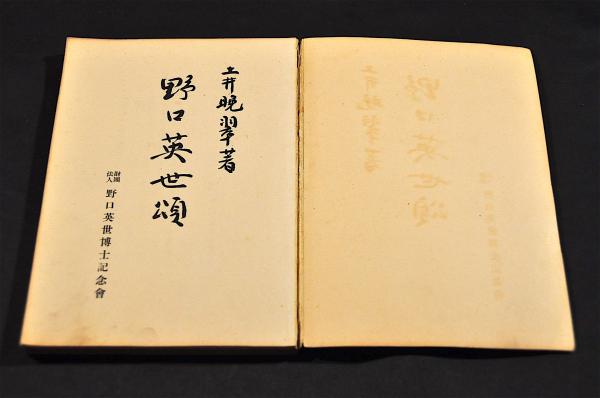 土井晩翠著
野口英世頌
財團法人 野口英世博士記念會